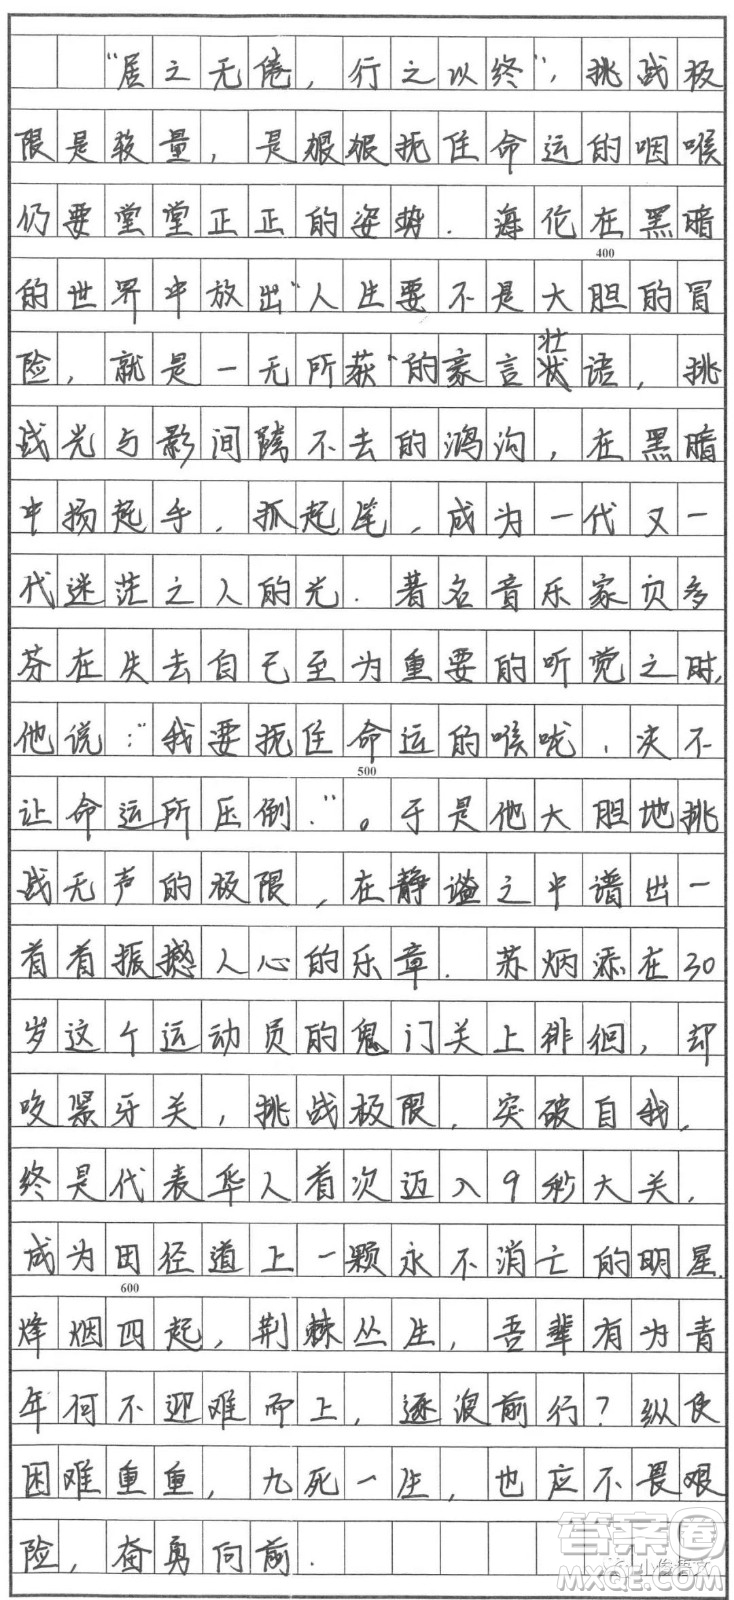 “居之无倦，行之以终”，挑战极
限是较量，是狠狠扼住命运的咽喉
仍要堂堂正正的姿势．海伦在黑暗
400
的世界中放出“人生要不是大胆的冒
险，就是一无所获”的豪言壮语，挑
战光与影间跨不去的鸿沟，在黑暗
中扬起手，抓起笔，成为一代又一
代迷茫之人的光．著名音乐家贝多
芬在失去自己至为重要的听觉之时，
他说：“我要扼住命运的喉咙，决不
500
让命运所压倒．”。于是他大胆地挑
战无声的极限，在静谧之中谱出一
首首振撼人心的乐章．苏炳添在30
岁这个运动员的鬼门关上徘徊，却
咬紧牙关，挑战极限，突破自我，
终是代表华人首次迈入9秒大关，
成为田径道上一颗永不消亡的明星．
600
烽烟四起，荆棘丛生，吾辈有为青
年何不迎难而上，逐浪前行？纵使
困难重重，九死一生，也应不畏艰
险，奋勇向前．
答案圈
MXQE.COM